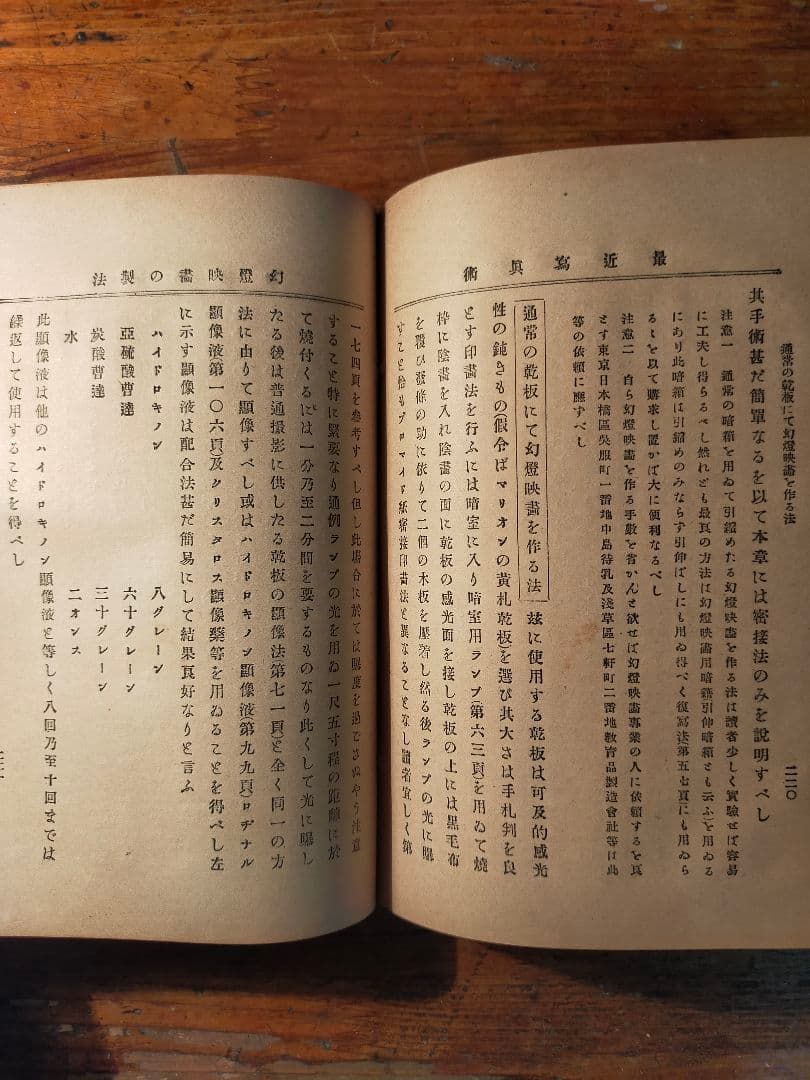 最近寫眞術
通常の乾板にて幻燈映畵を作る法
二二〇
其手術甚だ簡單なるを以て本章には密接法のみを説明すべし
注意一　通常の暗箱を用ゐて引縮めたる幻燈映畵を作る法は讀者少しく實驗せば容易
に工夫し得らるべし然れども最良の方法は幻燈映畵用暗箱(引伸暗箱とも云ふ)を用ゐる
にあり此暗箱は引縮めのみならず引伸ばしにも用ゐ得べく復寫法(第五七頁)にも用ゐら
るゝを以て購求し置かば大に便利なるべし
注意二　自ら幻燈映畵を作る手數を省かんと欲せば幻燈映畵專業の人に依頼するを良
とす東京日本橋區呉服町一番地中島待乳及淺草區七軒町二番地敎育品製造會社等は此
等の依頼に應すべし
通常の乾板にて幻燈映畵を作る法　玆に使用する乾板は可及的感光
性の鈍きもの(假令ばマリオンの黄札乾板)を選び其大さは手札判を良
とす印畵法を行ふには暗室に入り暗室用ランプ(第六三頁)を用ゐて燒
枠に陰畵を入れ陰畵の面に乾板の感光面を接し乾板の上には黒毛布
を覆ひ發條の功に依りて二個の木板を壓着し然る後ランプの光に曝
すこと恰もブロマイド紙密接印畵法と異なることなし讀者宜しく第
幻燈映畵の製法
一七四頁を參考すべし但し此塲合に於ては曝度を過ごさぬやう注意
すること特に緊要なり通例ランプの光を用ゐ一尺五寸程の距離に於
て燒付くるには一分乃至二分間を要するものなり此くして光に曝し
たる後は普通撮影に供したる乾板の顯像法(第七一頁)と全く同一の方
法に由りて顯像すべし或はハイドロキノン顯像液(第九九頁)ロヂナル
顯像液(第一〇六頁)及クリスタロス顯像藥等を用ゐることを得べし左
に示す顯像液は配合法甚だ簡易にして結果良好なりと言ふ
ハイドロキノン　八グレーン
亞硫酸曹達　六十グレーン
炭酸曹達　三十グレーン
水　二オンス
此顯像液は他のハイドロキノン顯像液と等しく八回乃至十回までは
繰返して使用することを得べし